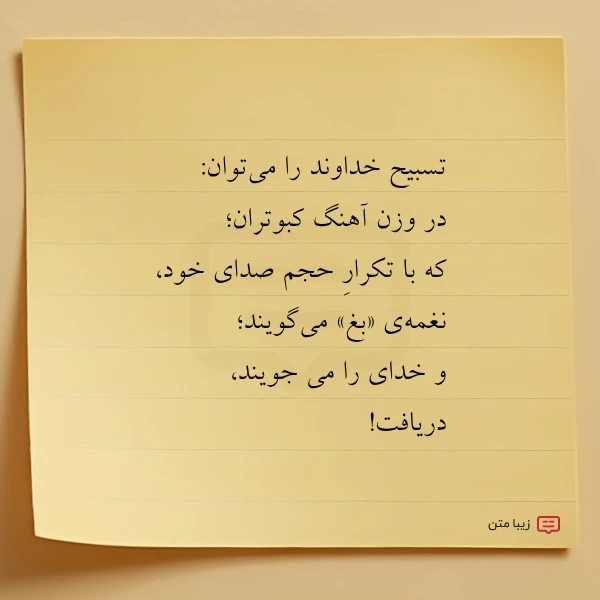 تسبیح خداوند را می‌توان:
در وزن آهنگ کبوتران؛
که با تکرارِ حجم صدای خود،
نغمه‌ی «بغ» می‌گویند؛
و خدای را می جویند،
دریافت!
زیبا متن